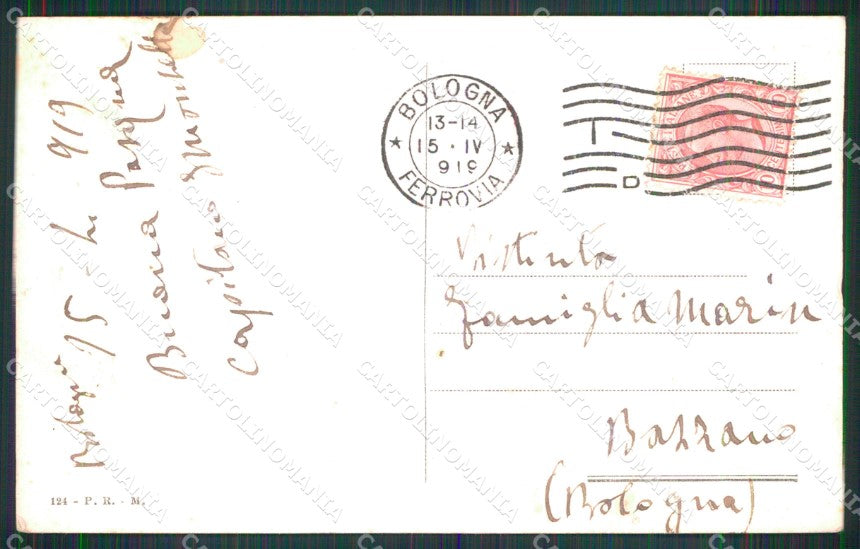 Bologna 15 4 919
Buona Pasqua
Capitano
124 - P. R. - M.
BOLOGNA
13-14
15 · IV
919
FERROVIA
Distinta
Famiglia Marin
Bazzano
(Bologna)
CARTOLINOMANIA